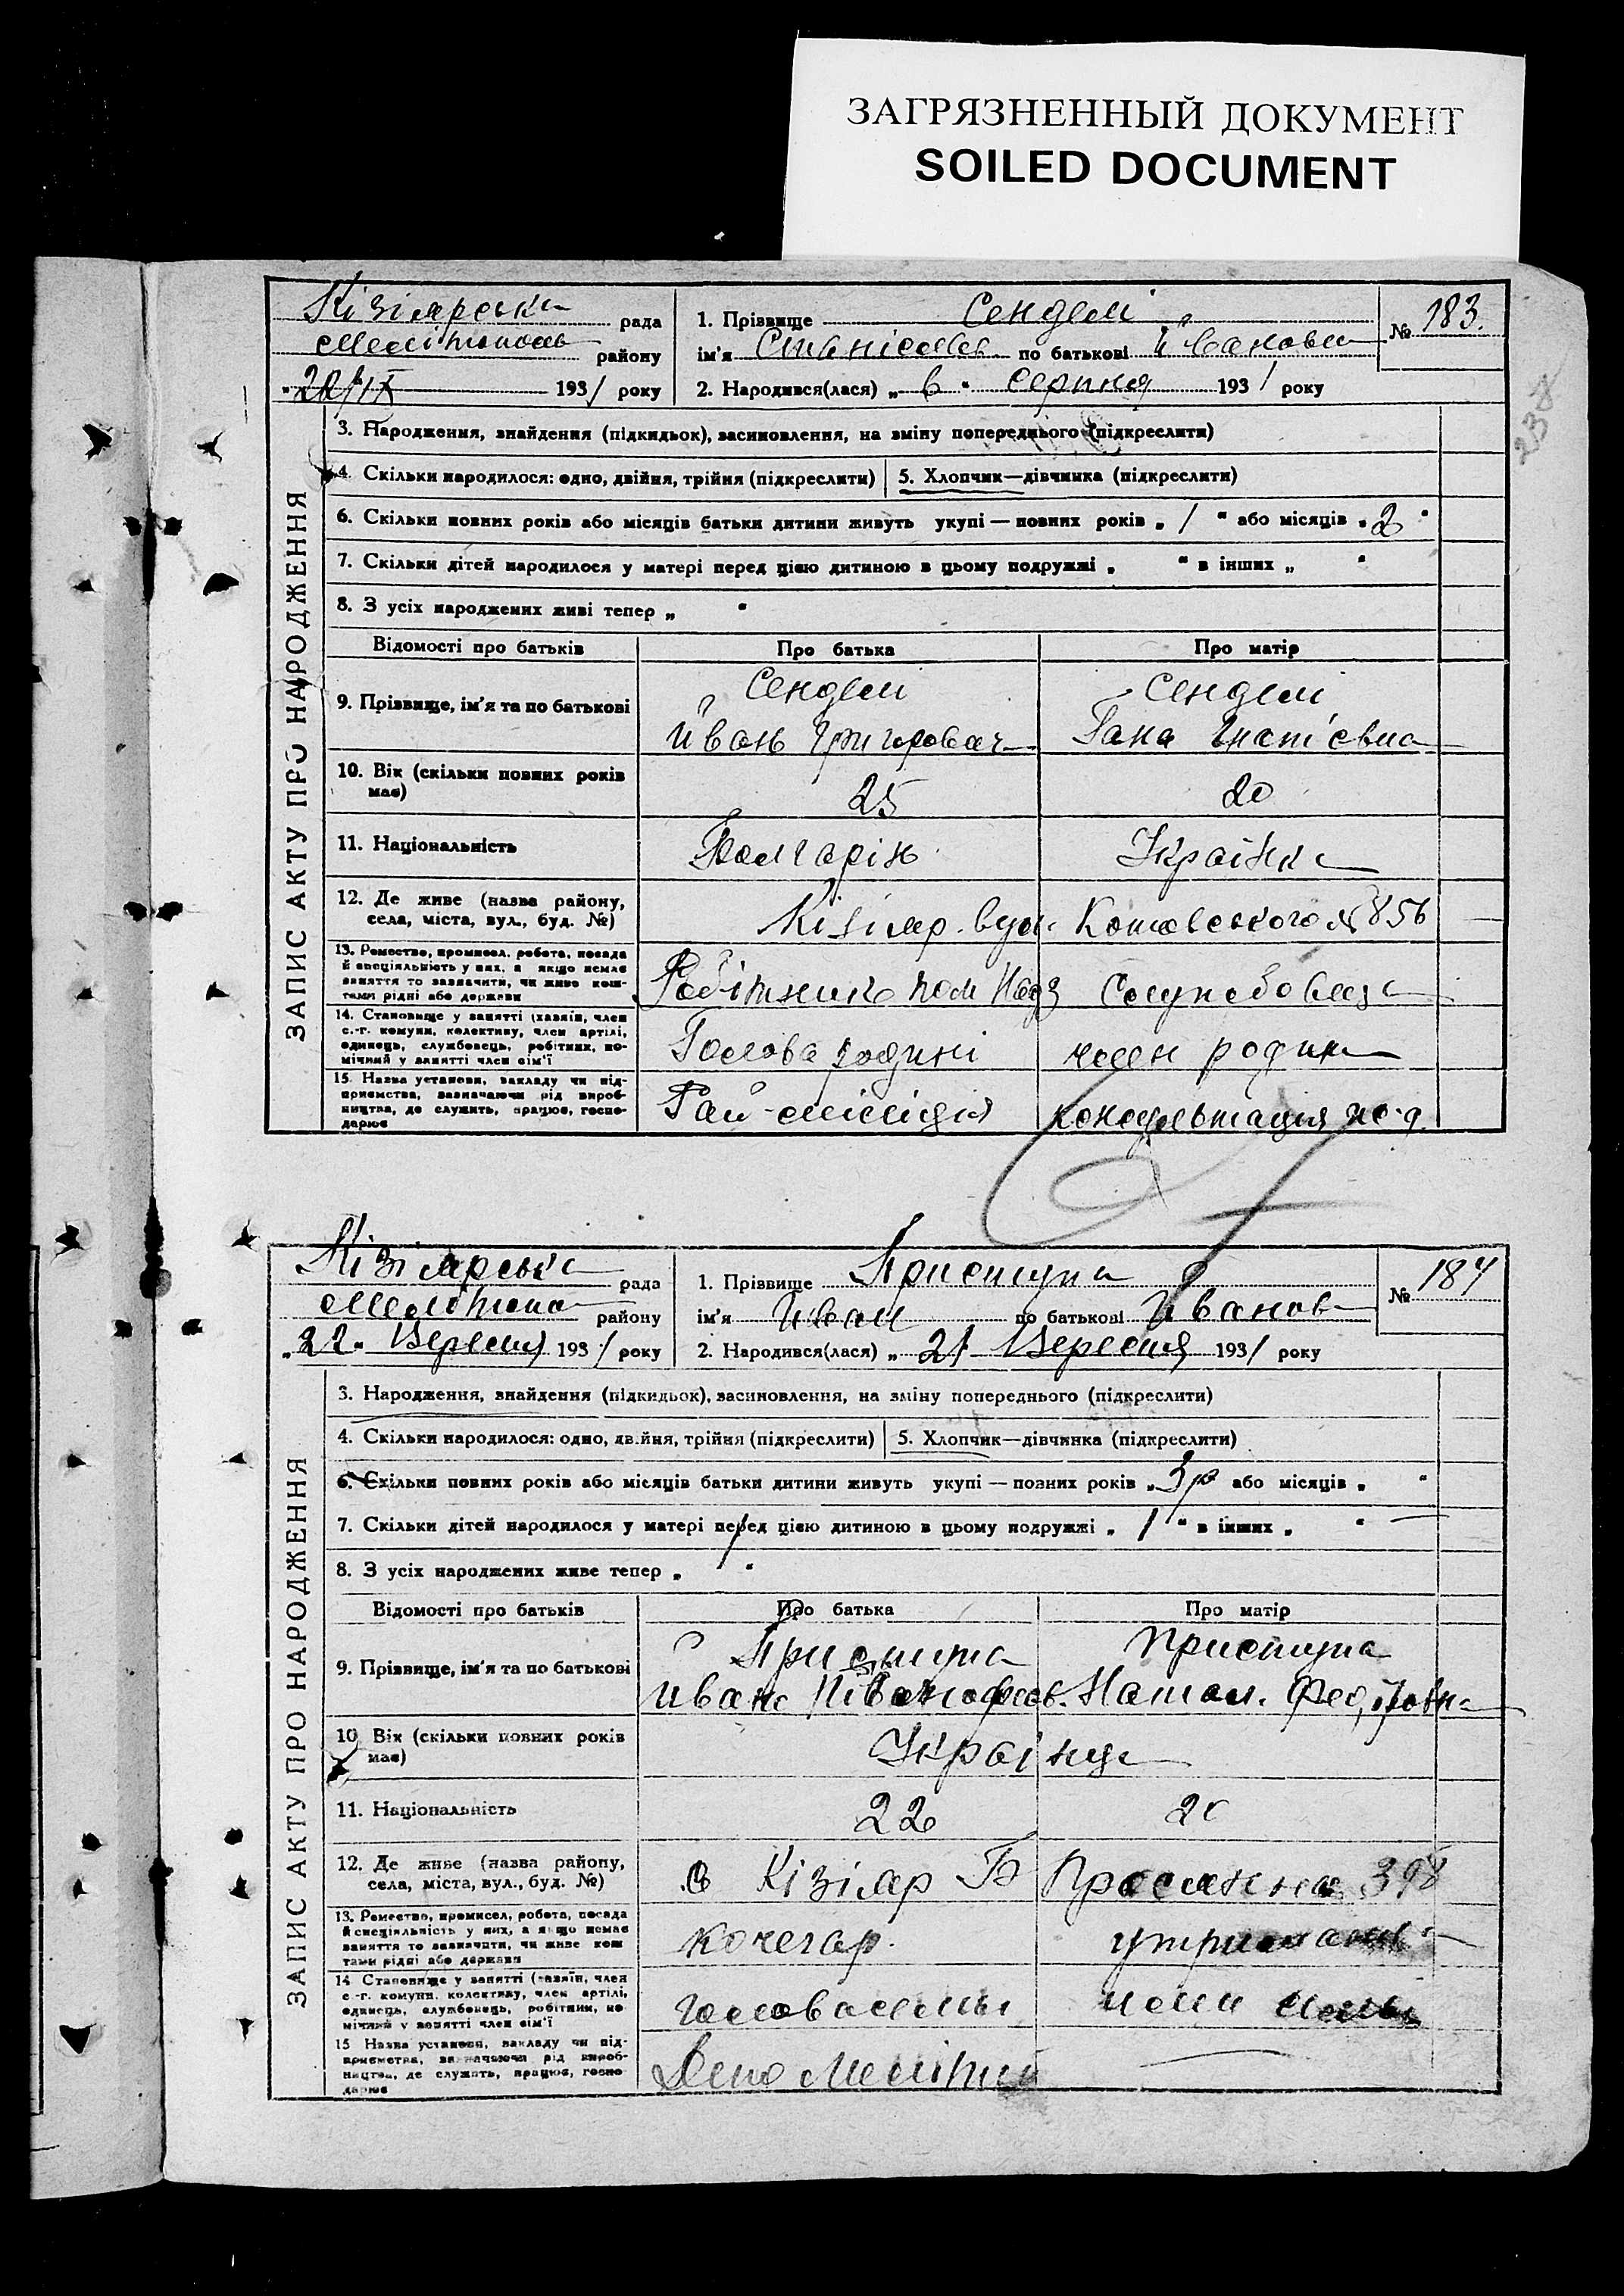 ЗАГРЯЗНЕННЫЙ ДОКУМЕНТ
SOILED DOCUMENT
238
ЗАПИС АКТУ ПРО НАРОДЖЕННЯ
Кізіярська рада
Мелітополь району
20/IX 1931 року
1. Прізвище Сенделі
ім'я Станіслав по батькові Иванови
2. Народився(лася) „6“ Серпня 1931 року
№ 183.
3. Народження, знайдення (підкидьок), засиновлення, на зміну попереднього (підкреслити)
4. Скільки народилося: одно, двійня, трійня (підкреслити) 5. Хлопчик—дівчинка (підкреслити)
6. Скільки повних років або місяців батьки дитини живуть укупі — повних років „1“ або місяців „2“
7. Скільки дітей народилося у матері перед цією дитиною в цьому подружжі „ “ в інших „ “
8. З усіх народжених живі тепер „ “
Відомості про батьків Про батька Про матір
9. Прізвище, ім'я та по батькові
Сенделі Сенделі
Иван Григорович Гана Гнатієвна
10. Вік (скільки повних років має) 25 20
11. Національність Болгарін Українка
12. Де живе (назва району, села, міста, вул., буд. №) Кізіяр. вул. Котовського № 856
13. Ремество, промисел, робота, посада й спеціяльність у них, а якщо немає заняття то зазначити, чи живе коштами рідні або держави
Робітник пом Службовец
14. Становище у занятті (хазяїн, член с.-г. комуни, колективу, член артілі, одинець, службовець, робітник, помічний у занятті член сім'ї
Голова родині член родин
15. Назва установи, закладу чи підприємства, зазначаючи рід виробництва, де служить, працює, господарює
Рай-міліція консультація
ЗАПИС АКТУ ПРО НАРОДЖЕННЯ
Кізіярська рада
Мелітопо району
„22“ Вересня 1931 року
1. Прізвище Приступа
ім'я Иван по батькові Иванов
2. Народився(лася) „21 Вересня 1931 року
№ 184
3. Народження, знайдення (підкидьок), засиновлення, на зміну попереднього (підкреслити)
4. Скільки народилося: одно, двійня, трійня (підкреслити) 5. Хлопчик—дівчинка (підкреслити)
6. Скільки повних років або місяців батьки дитини живуть укупі — повних років „3р або місяців „ “
7. Скільки дітей народилося у матері перед цією дитиною в цьому подружжі „1“ в інших „ “
8. З усіх народжених живе тепер „ “
Відомості про батьків Про батька Про матір
9. Прізвище, ім'я та по батькові
Приступа Приступа
Иван Натал.
10. Вік (скільки повних років має) Українци
11. Національність 22 20
12. Де живе (назва району, села, міста, вул., буд. №) с Кізіяр 398
13. Ремество, промисел, робота, посада й спеціяльність у них, а якщо немає заняття то зазначити, чи живе коштами рідні або держави
кочегар.
14. Становище у занятті (хазяїн, член с.-г. комуни, колективу, член артілі, одинець, службовець, робітник, помічний у занятті член сім'ї
голова семьи член семьи
15. Назва установи, закладу чи підприємства, зазначаючи рід виробництва, де служить, працює, господарює
Депо Меліто